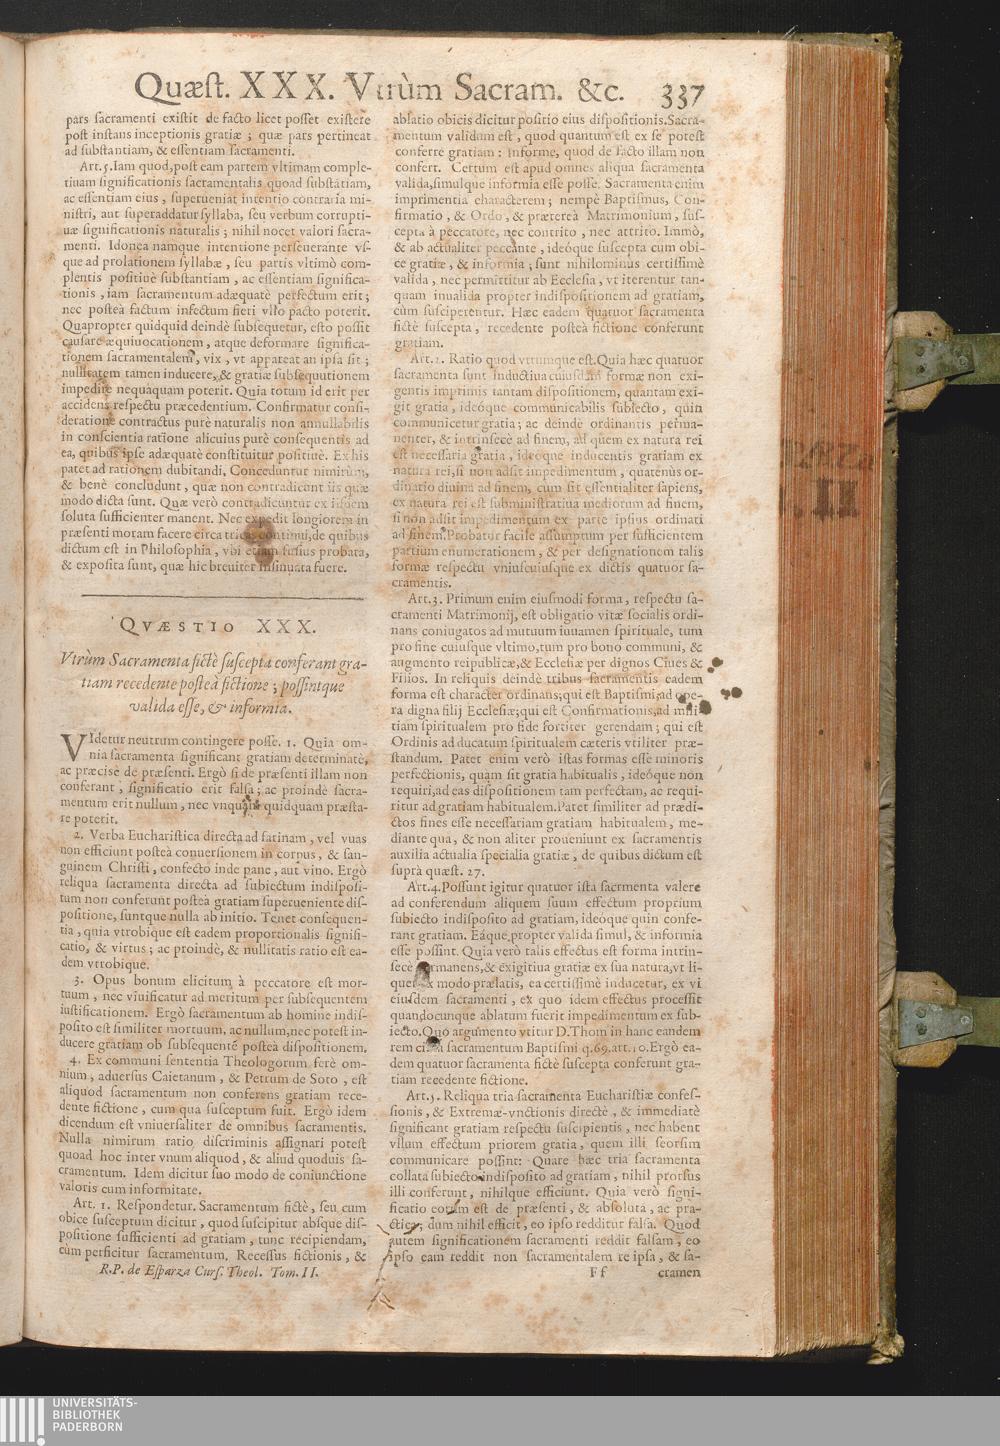 Quæst. XXX. Vtrùm Sacram. &c. 337
pars sacramenti existit de facto licet posset existere
post instans inceptionis gratiæ ; quæ pars pertineat
ad substantiam, & essentiam sacramenti.
Art. 5. Iam quod, post eam partem vltimam comple-
tiuam significationis sacramentalis quoad substãtiam,
ac essentiam eius , superueniat intentio contraria mi-
nistri, aut superaddatur syllaba, seu verbum corrupti-
uæ significationis naturalis ; nihil nocet valori sacra-
menti. Idonea namque intentione perseuerante vs-
que ad prolationem syllabæ , seu partis vltimò com-
plentis positiuè substantiam , ac essentiam significa-
tionis , iam sacramentum adæquatè perfectum erit ;
nec posteà factum infectum fieri vllo pacto poterit.
Quapropter quidquid deindè subsequetur, esto possit
causare æquiuocationem , atque deformare significa-
tionem sacramentalem , vix , vt appareat an ipsa sit ;
nullitatem tamen inducere, & gratiæ subsequutionem
impedire nequaquam poterit. Quia totum id erit per
accidens respectu præcedentium. Confirmatur consi-
deratione contractus purè naturalis non annullabilis
in conscientia ratione alicuius purè consequentis ad
ea, quibus ipse adæquatè constituitur positiuè. Ex his
patet ad rationem dubitandi, Conceduntur nimirùm,
& benè concludunt , quæ non contradicunt iis quæ
modo dicta sunt. Quæ verò contradicuntur ex iisdem
soluta sufficienter manent. Nec expedit longiorem in
præsenti moram facere circa tricas continui, de quibus
dictum est in Philosophia , vbi etiam fusius probata,
& exposita sunt, quæ hic breuiter insinuata fuere.
QVÆSTIO XXX.
Vtrùm Sacramenta fictè suscepta conferant gra-
tiam recedente posteà fictione ; possintque
valida esse, & informia.
VIdetur neutrum contingere posse. 1. Quia om-
nia sacramenta significant gratiam determinatè,
ac præcisè de præsenti. Ergò si de præsenti illam non
conferant , significatio erit falsa ; ac proindè sacra-
mentum erit nullum , nec vnquàm quidquam præsta-
re poterit.
2. Verba Eucharistica directa ad farinam , vel vuas
non efficiunt posteà conuersionem in corpus , & san-
guinem Christi , confecto inde pane , aut vino. Ergò
reliqua sacramenta directa ad subiectum indisposi-
tum non conferunt posteà gratiam superueniente dis-
positione, suntque nulla ab initio. Tenet consequen-
tia , quia vtrobique est eadem proportionalis signifi-
catio, & virtus ; ac proindè, & nullitatis ratio est ea-
dem vtrobique.
3. Opus bonum elicitum à peccatore est mor-
tuum , nec viuificatur ad meritum per subsequentem
iustificationem. Ergò sacramentum ab homine indis-
posito est similiter mortuum, ac nullum, nec potest in-
ducere gratiam ob subsequentẽ posteà dispositionem.
4. Ex communi sententia Theologorum ferè om-
nium , aduersus Caietanum , & Petrum de Soto , est
aliquod sacramentum non conferens gratiam rece-
dente fictione , cum qua susceptum fuit. Ergò idem
dicendum est vniuersaliter de omnibus sacramentis.
Nulla nimirum ratio discriminis assignari potest
quoad hoc inter vnum aliquod , & aliud quoduis sa-
cramentum. Idem dicitur suo modo de coniunctione
valoris cum informitate.
Art. 1. Respondetur. Sacramentum fictè , seu cum
obice susceptum dicitur , quod suscipitur absque dis-
positione sufficienti ad gratiam , tunc recipiendam,
cùm perficitur sacramentum. Recessus fictionis , &
R.P. de Esparza Curs. Theol. Tom. II.
ablatio obicis dicitur positio eius dispositionis. Sacra-
mentum validum est , quod quantum est ex se potest
conferre gratiam : Informe, quod de facto illam non
confert. Certum est apud omnes aliqua sacramenta
valida, simulque informia esse posse. Sacramenta enim
imprimentia characterem ; nempè Baptismus, Con-
firmatio , & Ordo , & prætereà Matrimonium , sus-
cepta à peccatore, nec contrito , nec attrito. Immò,
& ab actualiter peccante , ideóque suscepta cum obi-
ce gratiæ , & informia ; sunt nihilominus certissimè
valida , nec permittitur ab Ecclesia , vt iterentur tan-
quam inualida propter indispositionem ad gratiam,
cùm susciperentur. Hæc eadem quatuor sacramenta
fictè suscepta , recedente posteà fictione conferunt
gratiam.
Art. 2. Ratio quod vtrumque est. Quia hæc quatuor
sacramenta sunt inductiua cuiusdam formæ non exi-
gentis imprimis tantam dispositionem, quantam exi-
git gratia , ideóque communicabilis subiecto , quin
communicetur gratia ; ac deindè ordinantis perma-
nenter, & intrinsecè ad finem, ad quem ex natura rei
est necessaria gratia , ideóque inducentis gratiam ex
natura rei, si non adsit impedimentum , quatenùs or-
dinatio diuina ad finem, cum sit essentialiter sapiens,
ex natura rei est subministratiua mediorum ad finem,
si non adsit impedimentum ex parte ipsius ordinati
ad finem. Probatur facile assumptum per sufficientem
partium enumerationem , & per designationem talis
formæ respectu vniuscuiusque ex dictis quatuor sa-
cramentis.
Art. 3. Primum enim eiusmodi forma , respectu sa-
cramenti Matrimonij, est obligatio vitæ socialis ordi-
nans coniugatos ad mutuum iuuamen spirituale, tum
pro fine cuiusque vltimo, tum pro bono communi, &
augmento reipublicæ, & Ecclesiæ per dignos Ciues &
Filios. In reliquis deindè tribus sacramentis eadem
forma est character ordinans; qui est Baptismi, ad ope-
ra digna filij Ecclesiæ; qui est Confirmationis, ad mili-
tiam spiritualem pro fide fortiter gerendam ; qui est
Ordinis ad ducatum spiritualem cæteris vtiliter præ-
standum. Patet enim verò istas formas esse minoris
perfectionis, quam sit gratia habitualis , ideóque non
requiri, ad eas dispositionem tam perfectam, ac requi-
ritur ad gratiam habitualem. Patet similiter ad prædi-
ctos fines esse necessariam gratiam habitualem , me-
diante qua , & non aliter proueniunt ex sacramentis
auxilia actualia specialia gratiæ , de quibus dictum est
suprà quæst. 27.
Art. 4. Possunt igitur quatuor ista sacrmenta valere
ad conferendum aliquem suum effectum proprium
subiecto indisposito ad gratiam, ideóque quin confe-
rant gratiam. Eáque propter valida simul, & informia
esse possint. Quia verò talis effectus est forma intrin-
secè permanens, & exigitiua gratiæ ex sua natura, vt li-
quet ex modo prælatis, ea certissimè inducetur, ex vi
eiusdem sacramenti , ex quo idem effectus processit
quandocunque ablatum fuerit impedimentum ex sub-
iecto. Quo argumento vtitur D. Thom in hanc eandem
rem circa sacramentum Baptismi q. 69. art. 10. Ergò ea-
dem quatuor sacramenta fictè suscepta conferunt gra-
tiam recedente fictione.
Art. 5. Reliqua tria sacramenta Eucharistiæ confes-
sionis , & Extremæ-vnctionis directè , & immediatè
significant gratiam respectu suscipientis , nec habent
vllum effectum priorem gratia , quem illi seorsim
communicare possint: Quare hæc tria sacramenta
collata subiecto indisposito ad gratiam , nihil prorsus
illi conferunt , nihilque efficiunt. Quia verò signi-
ficatio eorum est de præsenti , & absoluta , ac pra-
ctica ; dum nihil efficit , eo ipso redditur falsa. Quod
autem significationem sacramenti reddit falsam , eo
ipso eam reddit non sacramentalem re ipsa , & sa-
Ff cramen
UNIVERSITÄTS-
BIBLIOTHEK
PADERBORN